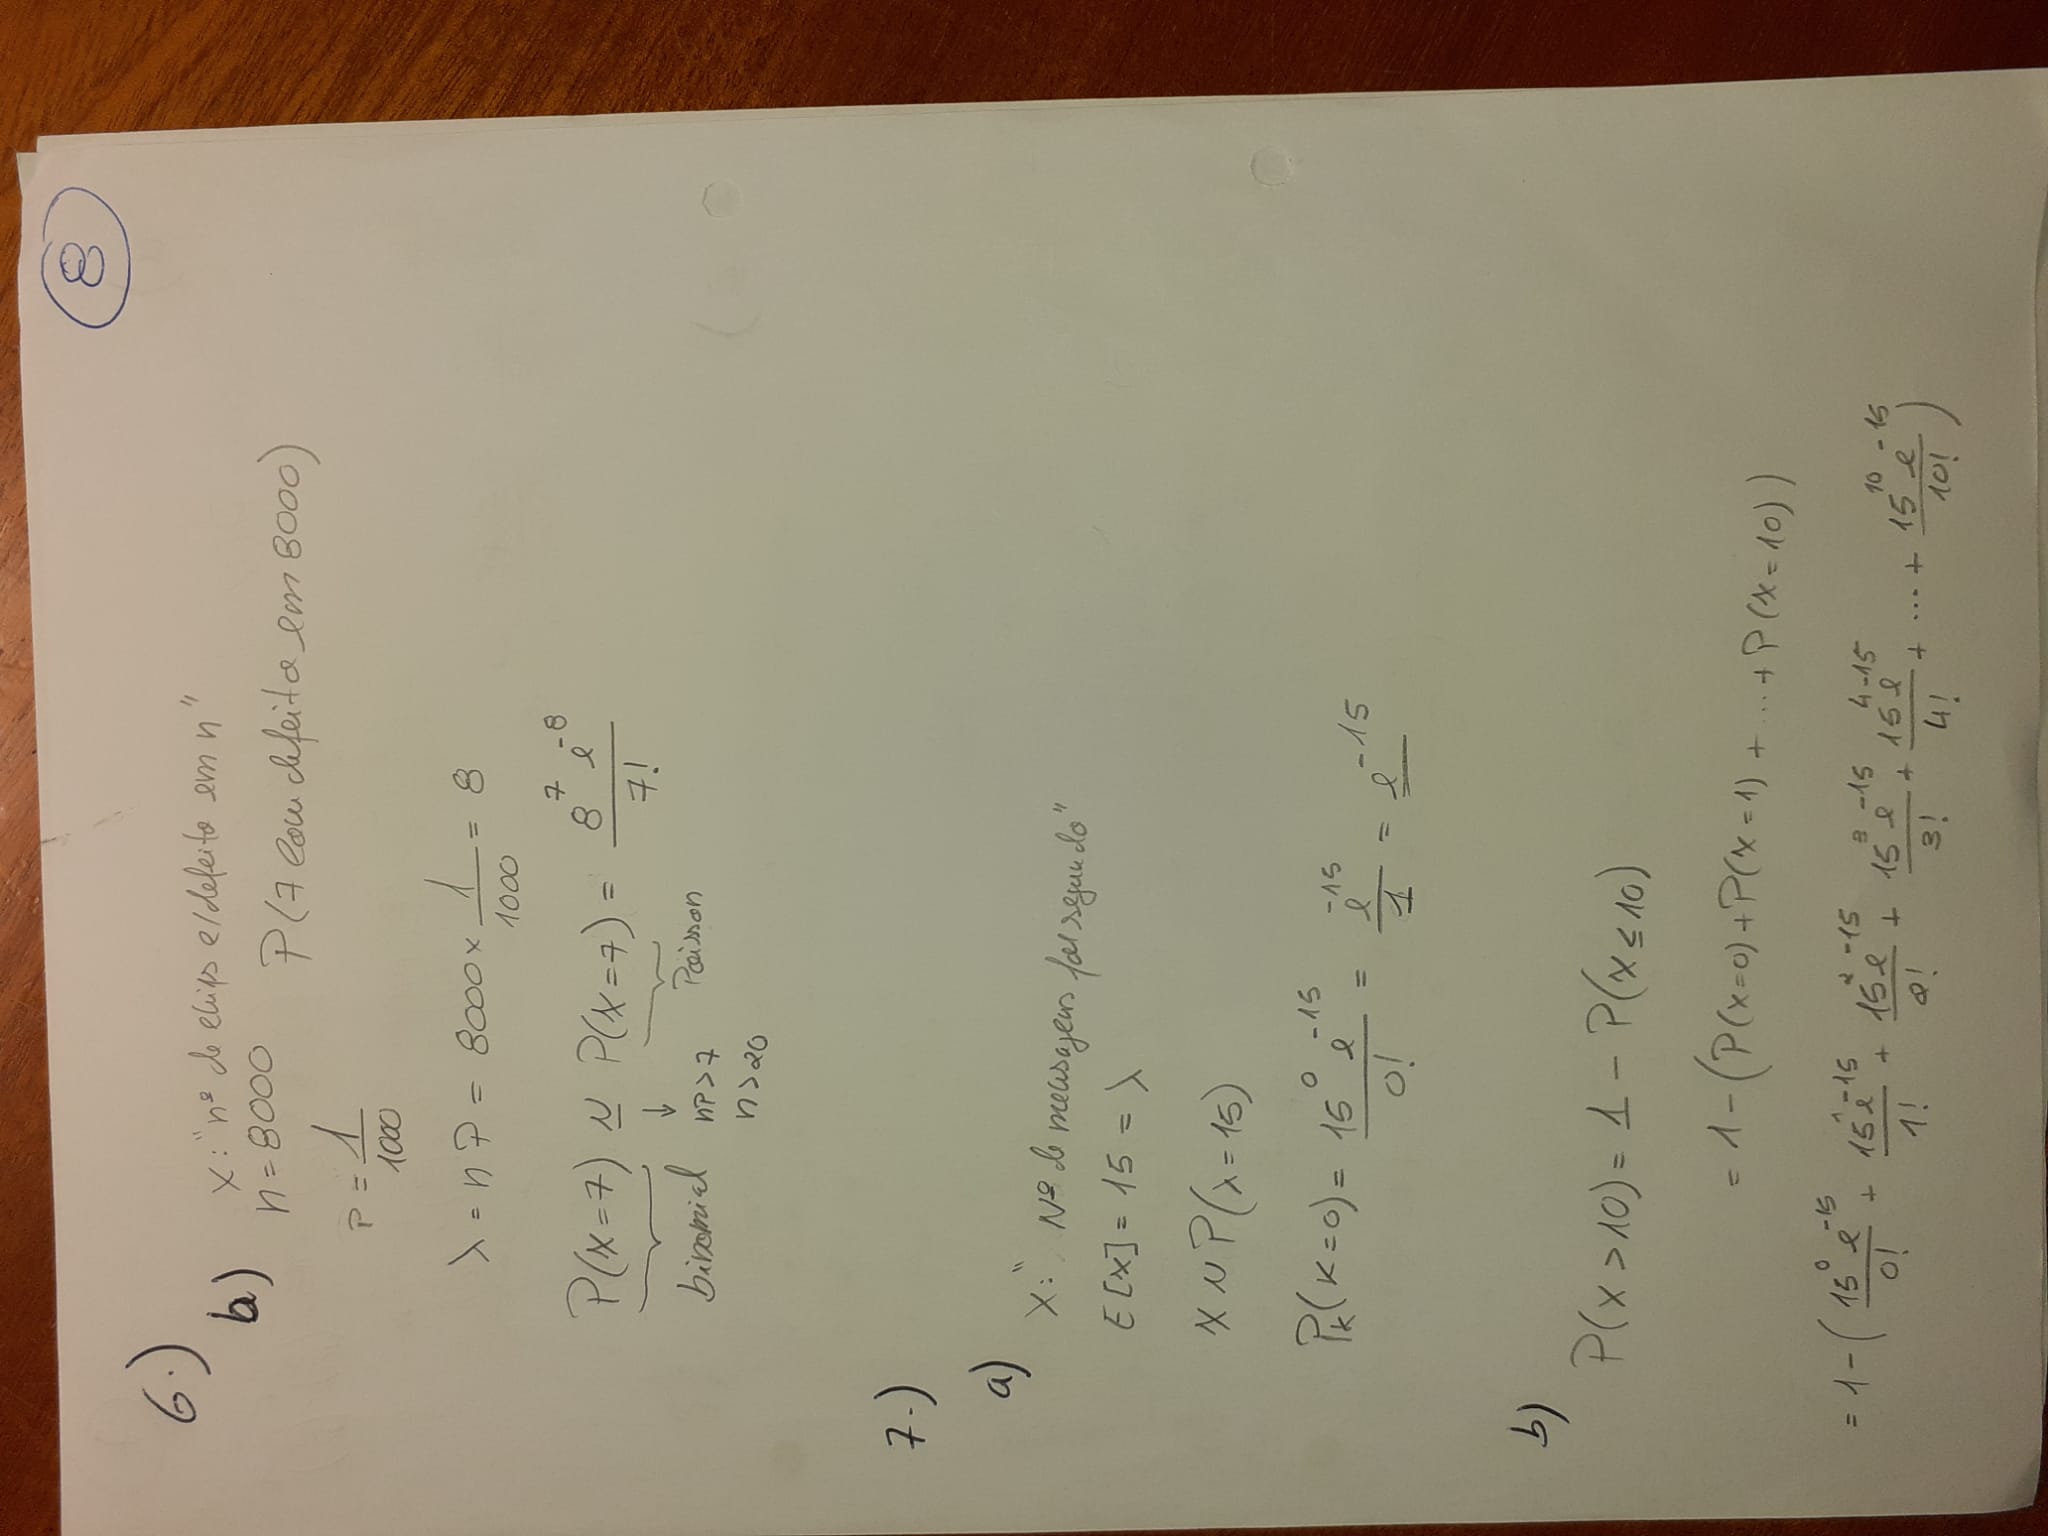 8
6.)
b)
X: "nº de chips c/defeito em n"
n = 8000
P(7 com defeito em 8000)
P = 1/1000
λ = n P = 8000 × 1/1000 = 8
P(X=7) ≃ P(X=7) = 8^7 e^-8 / 7!
binomial ↓ Poisson
nP>7
n>20
7.)
a)
X: " Nº de mensagens por segundo"
E[X] = 15 = λ
X ~ P(λ=15)
P_k(K=0) = 15^0 e^-15 / 0! = e^-15 / 1 = e^-15
b)
P(X>10) = 1 - P(X≤10)
= 1 - (P(X=0) + P(X=1) + ... + P(X=10))
= 1 - (15^0 e^-15 / 0! + 15^1 e^-15 / 1! + 15^2 e^-15 / 2! + 15^3 e^-15 / 3! + 15^4 e^-15 / 4! + ... + 15^10 e^-15 / 10!)